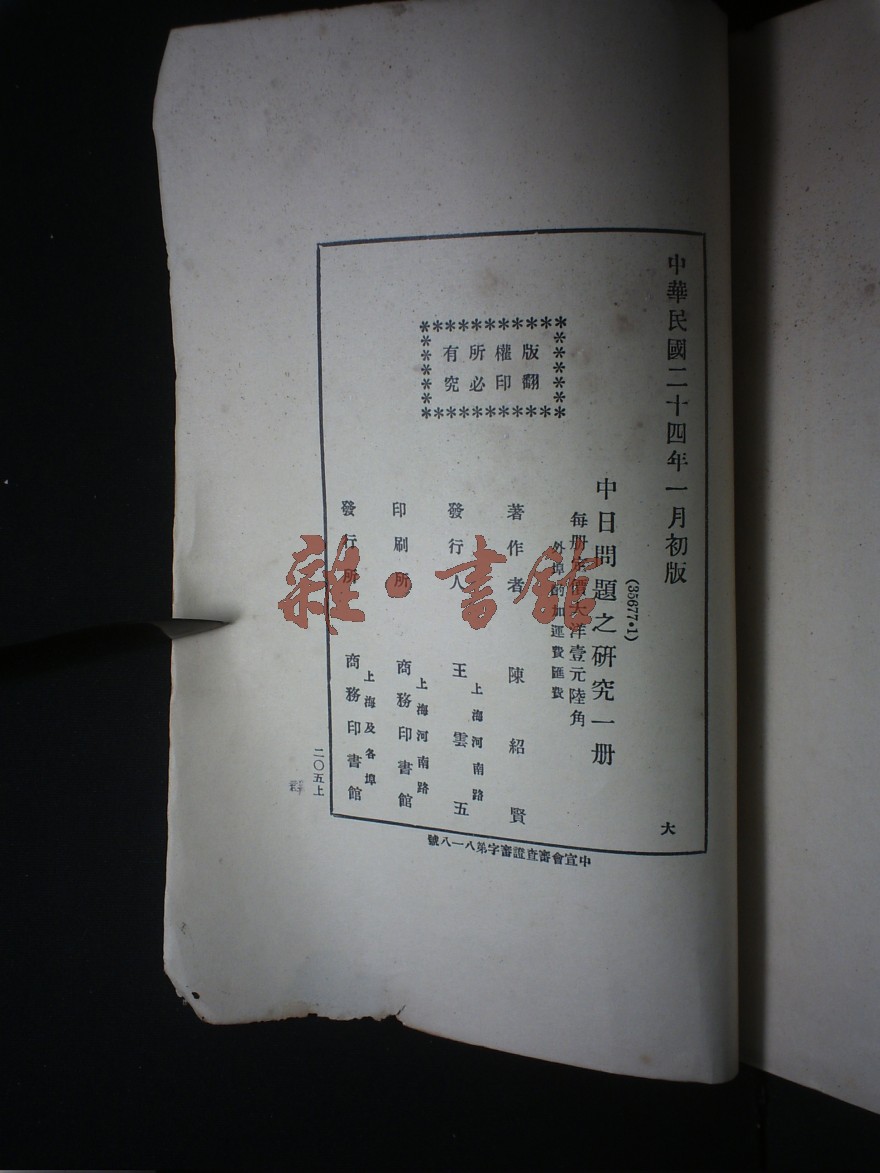 中華民國二十四年一月初版
大
(35677·1)
中日問題之研究一册
每册定價大洋壹元陸角
外埠酌加運費匯費
版權所有
翻印必究
著作者 陳紹賢
發行人 王雲五
上海河南路
印刷所 商務印書館
上海河南路
發行所 商務印書館
上海及各埠
二〇五上
中宣會審查證審字第八一八號
雜·書館